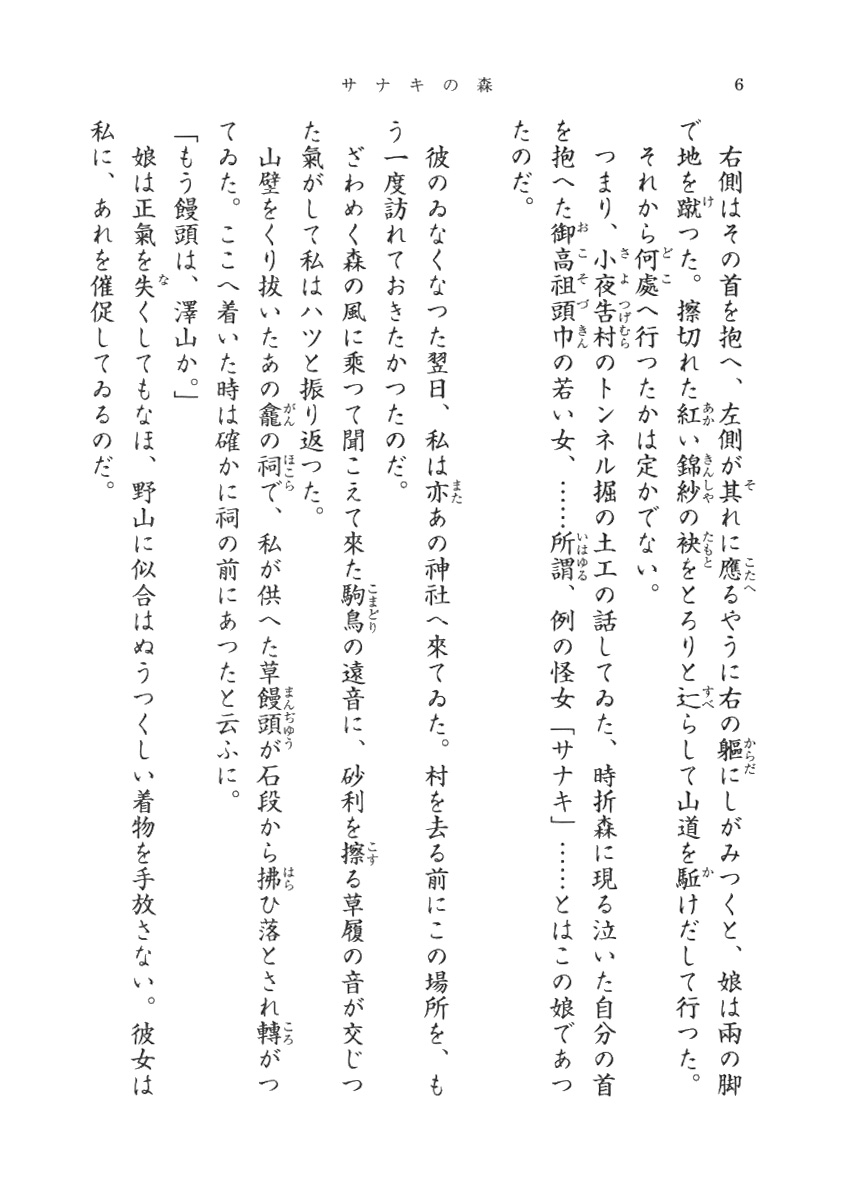 サナキの森
6
右側はその首を抱へ、左側が其れに應るやうに右の軀にしがみつくと、娘は兩の脚
で地を蹴つた。擦切れた紅い錦紗の袂をとろりと辷らして山道を駈けだして行つた。
それから何處へ行つたかは定かでない。
つまり、小夜告村のトンネル掘の土工の話してゐた、時折森に現る泣いた自分の首
を抱へた御高祖頭巾の若い女、……所謂、例の怪女「サナキ」……とはこの娘であつ
たのだ。
彼のゐなくなつた翌日、私は亦あの神社へ來てゐた。村を去る前にこの場所を、も
う一度訪れておきたかつたのだ。
ざわめく森の風に乘つて聞こえて來た駒鳥の遠音に、砂利を擦る草履の音が交じつ
た氣がして私はハツと振り返つた。
山壁をくり拔いたあの龕の祠で、私が供へた草饅頭が石段から拂ひ落とされ轉がつ
てゐた。ここへ着いた時は確かに祠の前にあつたと云ふに。
「もう饅頭は、澤山か。」
娘は正氣を失くしてもなほ、野山に似合はぬうつくしい着物を手放さない。彼女は
私に、あれを催促してゐるのだ。